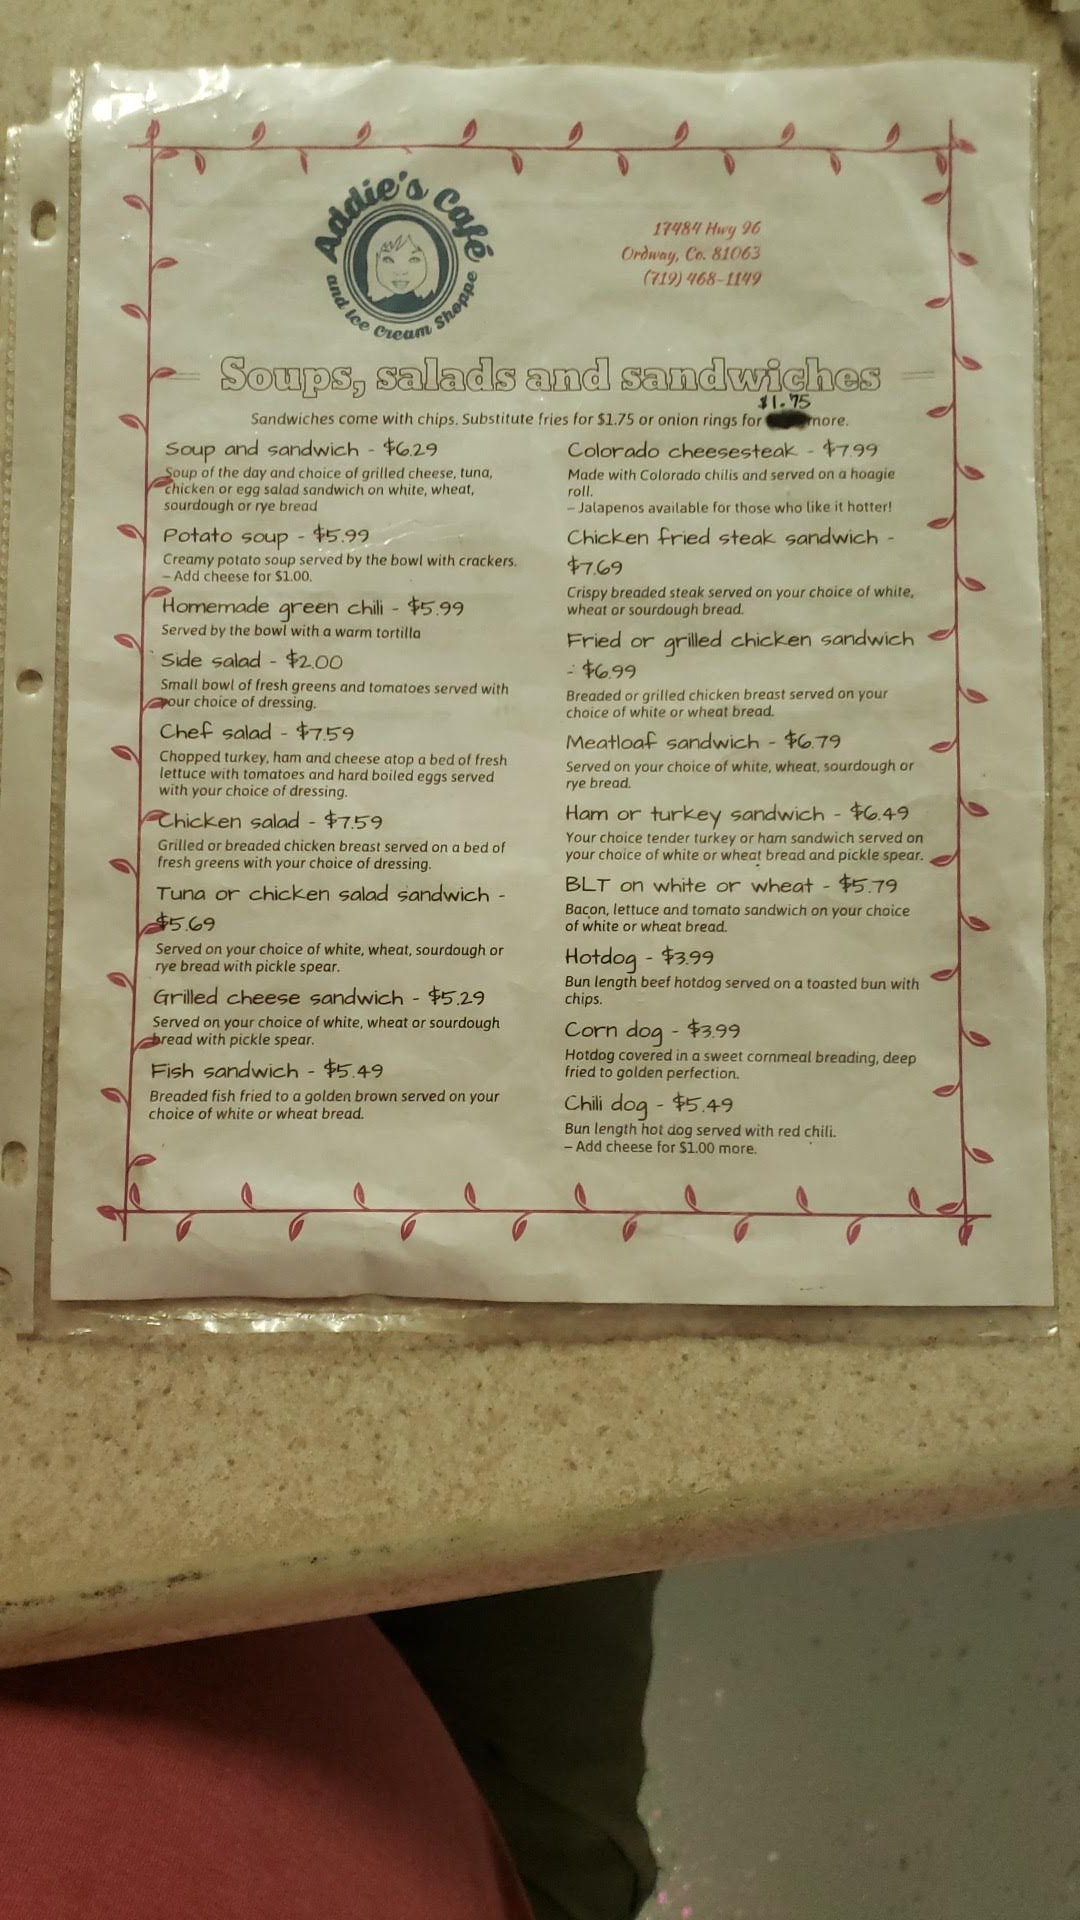 Addie's Café
and Ice Cream Shoppe
17484 Hwy 96
Ordway, Co. 81063
(719) 468-1149
Soups, salads and sandwiches
$1.75
Sandwiches come with chips. Substitute fries for $1.75 or onion rings for more.
Soup and sandwich - $6.29
Soup of the day and choice of grilled cheese, tuna,
chicken or egg salad sandwich on white, wheat,
sourdough or rye bread
Potato soup - $5.99
Creamy potato soup served by the bowl with crackers.
– Add cheese for $1.00.
Homemade green chili - $5.99
Served by the bowl with a warm tortilla
Side salad - $2.00
Small bowl of fresh greens and tomatoes served with
your choice of dressing.
Chef salad - $7.59
Chopped turkey, ham and cheese atop a bed of fresh
lettuce with tomatoes and hard boiled eggs served
with your choice of dressing.
Chicken salad - $7.59
Grilled or breaded chicken breast served on a bed of
fresh greens with your choice of dressing.
Tuna or chicken salad sandwich -
$5.69
Served on your choice of white, wheat, sourdough or
rye bread with pickle spear.
Grilled cheese sandwich - $5.29
Served on your choice of white, wheat or sourdough
bread with pickle spear.
Fish sandwich - $5.49
Breaded fish fried to a golden brown served on your
choice of white or wheat bread.
Colorado cheesesteak - $7.99
Made with Colorado chilis and served on a hoagie
roll.
– Jalapenos available for those who like it hotter!
Chicken fried steak sandwich -
$7.69
Crispy breaded steak served on your choice of white,
wheat or sourdough bread.
Fried or grilled chicken sandwich
- $6.99
Breaded or grilled chicken breast served on your
choice of white or wheat bread.
Meatloaf sandwich - $6.79
Served on your choice of white, wheat, sourdough or
rye bread.
Ham or turkey sandwich - $6.49
Your choice tender turkey or ham sandwich served on
your choice of white or wheat bread and pickle spear.
BLT on white or wheat - $5.79
Bacon, lettuce and tomato sandwich on your choice
of white or wheat bread.
Hotdog - $3.99
Bun length beef hotdog served on a toasted bun with
chips.
Corn dog - $3.99
Hotdog covered in a sweet cornmeal breading, deep
fried to golden perfection.
Chili dog - $5.49
Bun length hot dog served with red chili.
– Add cheese for $1.00 more.